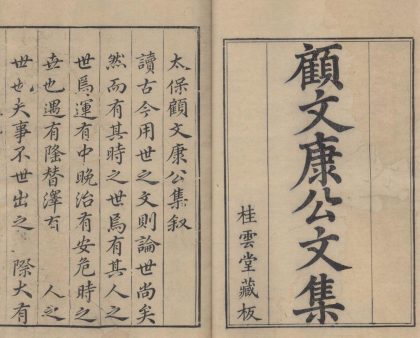 顧文康公文集
桂雲堂藏板
太保顧文康公集叙
讀古今用世之文則論世尚矣
然而有其時之世焉有其人之
世焉運有中晚治有安危時之
世也遇有隆替澤有 人之
世也夫事不世出之 際大有